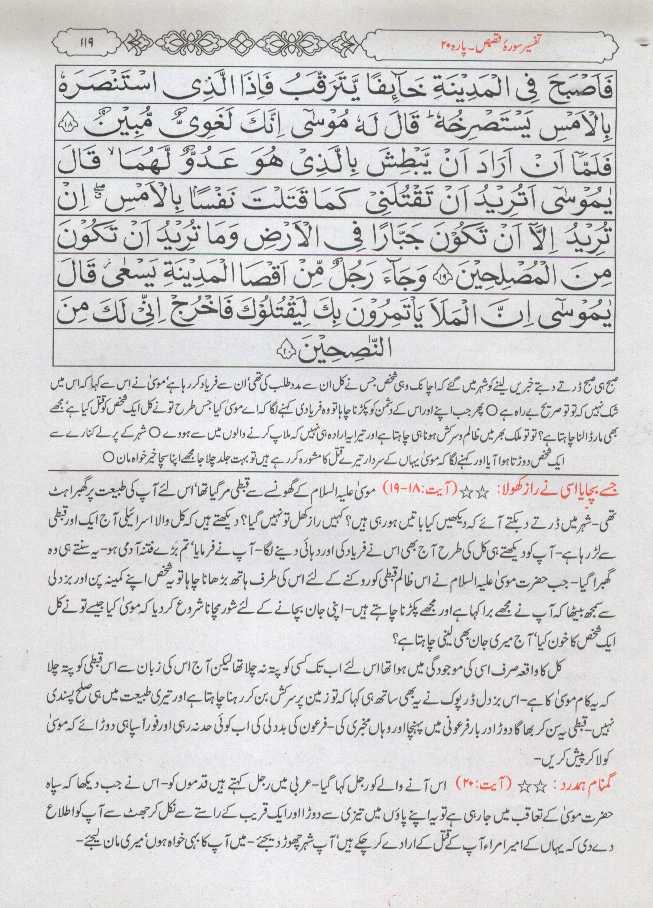 تفسیر سورۂ قصص۔ پارہ ۲۰
۱۱۹
فَاَصْبَحَ فِی الْمَدِیْنَةِ خَآئِفًا یَّتَرَقَّبُ فَاِذَا الَّذِی اسْتَنْصَرَهٗ
بِالْاَمْسِ یَسْتَصْرِخُهٗ ؕ قَالَ لَهٗ مُوْسٰۤی اِنَّكَ لَغَوِیٌّ مُّبِیْنٌ ﴿۱۸﴾
فَلَمَّاۤ اَنْ اَرَادَ اَنْ یَّبْطِشَ بِالَّذِیْ هُوَ عَدُوٌّ لَّهُمَا ۙ قَالَ
یٰمُوْسٰۤی اَتُرِیْدُ اَنْ تَقْتُلَنِیْ كَمَا قَتَلْتَ نَفْسًۢا بِالْاَمْسِ ۖ اِنْ
تُرِیْدُ اِلَّاۤ اَنْ تَكُوْنَ جَبَّارًا فِی الْاَرْضِ وَمَا تُرِیْدُ اَنْ تَكُوْنَ
مِنَ الْمُصْلِحِیْنَ ﴿۱۹﴾ وَجَآءَ رَجُلٌ مِّنْ اَقْصَا الْمَدِیْنَةِ یَسْعٰی قَالَ
یٰمُوْسٰۤی اِنَّ الْمَلَاَ یَاْتَمِرُوْنَ بِكَ لِیَقْتُلُوْكَ فَاخْرُجْ اِنِّیْ لَكَ مِنَ
النّٰصِحِیْنَ ﴿۲۰﴾
صبح ہی صبح ڈرتے دبتے خبریں لینے کو شہر میں گئے کہ اچانک وہی شخص جس نے کل ان سے مدد طلب کی تھی ان سے فریاد کر رہا ہے' موسیٰ نے اس سے کہا کہ اس میں
شک نہیں کہ تو تو صریح بے راہ ہے ○ پھر جب اپنے اور اس کے دشمن کو پکڑنا چاہا تو وہ فریادی کہنے لگا کہ اے موسیٰ کیا جس طرح تو نے کل ایک شخص کو قتل کیا ہے' مجھے
بھی مار ڈالنا چاہتا ہے؟ تو تو ملک بھر میں ظالم و سرکش ہونا ہی چاہتا ہے اور تیرا یہ ارادہ ہی نہیں کہ ملاپ کرنے والوں میں سے ہووے ○ شہر کے پرلے کنارے سے
ایک شخص دوڑتا ہوا آیا اور کہنے لگا کہ موسیٰ یہاں کے سردار تیرے قتل کا مشورہ کر رہے ہیں تو بہت جلد چلا جا' مجھے اپنا سچا خیر خواہ مان ○
جسے بچایا اسی نے راز کھولا: ☆☆ (آیت:۱۸-۱۹) موسیٰ علیہ السلام کے گھونسے سے قبطی مر گیا تھا' اس لئے آپ کی طبیعت پر گھبراہٹ
تھی- شہر میں ڈرتے دبکتے آئے کہ دیکھیں کیا باتیں ہو رہی ہیں؟ کہیں راز کھل تو نہیں گیا؟ دیکھتے ہیں کہ کل والا اسرائیلی آج ایک اور قبطی
سے لڑ رہا ہے- آپ کو دیکھتے ہی کل کی طرح آج بھی اس نے فریاد کی اور دہائی دینے لگا- آپ نے فرمایا' تم بڑے فتنہ آدمی ہو- یہ سنتے ہی وہ
گھبرا گیا- جب حضرت موسیٰ علیہ السلام نے اس ظالم قبطی کو روکنے کے لئے اس کی طرف ہاتھ بڑھانا چاہا تو یہ شخص اپنے کمینہ پن اور بزدلی
سے سمجھ بیٹھا کہ آپ نے مجھے برا کہا ہے اور مجھے پکڑنا چاہتے ہیں- اپنی جان بچانے کے لئے شور مچانا شروع کر دیا کہ موسیٰ کیا جیسے تو نے کل
ایک شخص کا خون کیا' آج میری جان بھی لینی چاہتا ہے؟
کل کا واقعہ صرف اسی کی موجودگی میں ہوا تھا' اس لئے اب تک کسی کو پتہ نہ چلا تھا لیکن آج اس کی زبان سے اس قبطی کو پتہ چلا
کہ یہ کام موسیٰ کا ہے- اس بزدل ڈرپوک نے یہ بھی ساتھ ہی کہا کہ تو زمین پر سرکش بن کر رہنا چاہتا ہے اور تیری طبیعت میں ہی صلح پسندی
نہیں- قبطی یہ سن کر بھاگا دوڑا دربار فرعونی میں پہنچا اور وہاں مخبری کی- فرعون کی بددلی کی اب کوئی حد نہ رہی اور فوراً سپاہی دوڑائے کہ موسیٰ
کو لا کر پیش کریں-
گمنام ہمدرد: ☆☆ (آیت:۲۰) اس آنے والے کو رجل کہا گیا- عربی میں رجل کہتے ہیں قدموں کو- اس نے جب دیکھا کہ سپاہ
حضرت موسیٰ کے تعاقب میں جا رہی ہے تو یہ اپنے پاؤں میں تیزی سے دوڑا اور ایک قریب کے راستے سے نکل کر جھٹ سے آپ کو اطلاع
دے دی کہ یہاں کے امیر امراء آپ کے قتل کے ارادے کر چکے ہیں' آپ شہر چھوڑ دیجئے- میں آپ کا بہی خواہ ہوں' میری مان لیجئے-